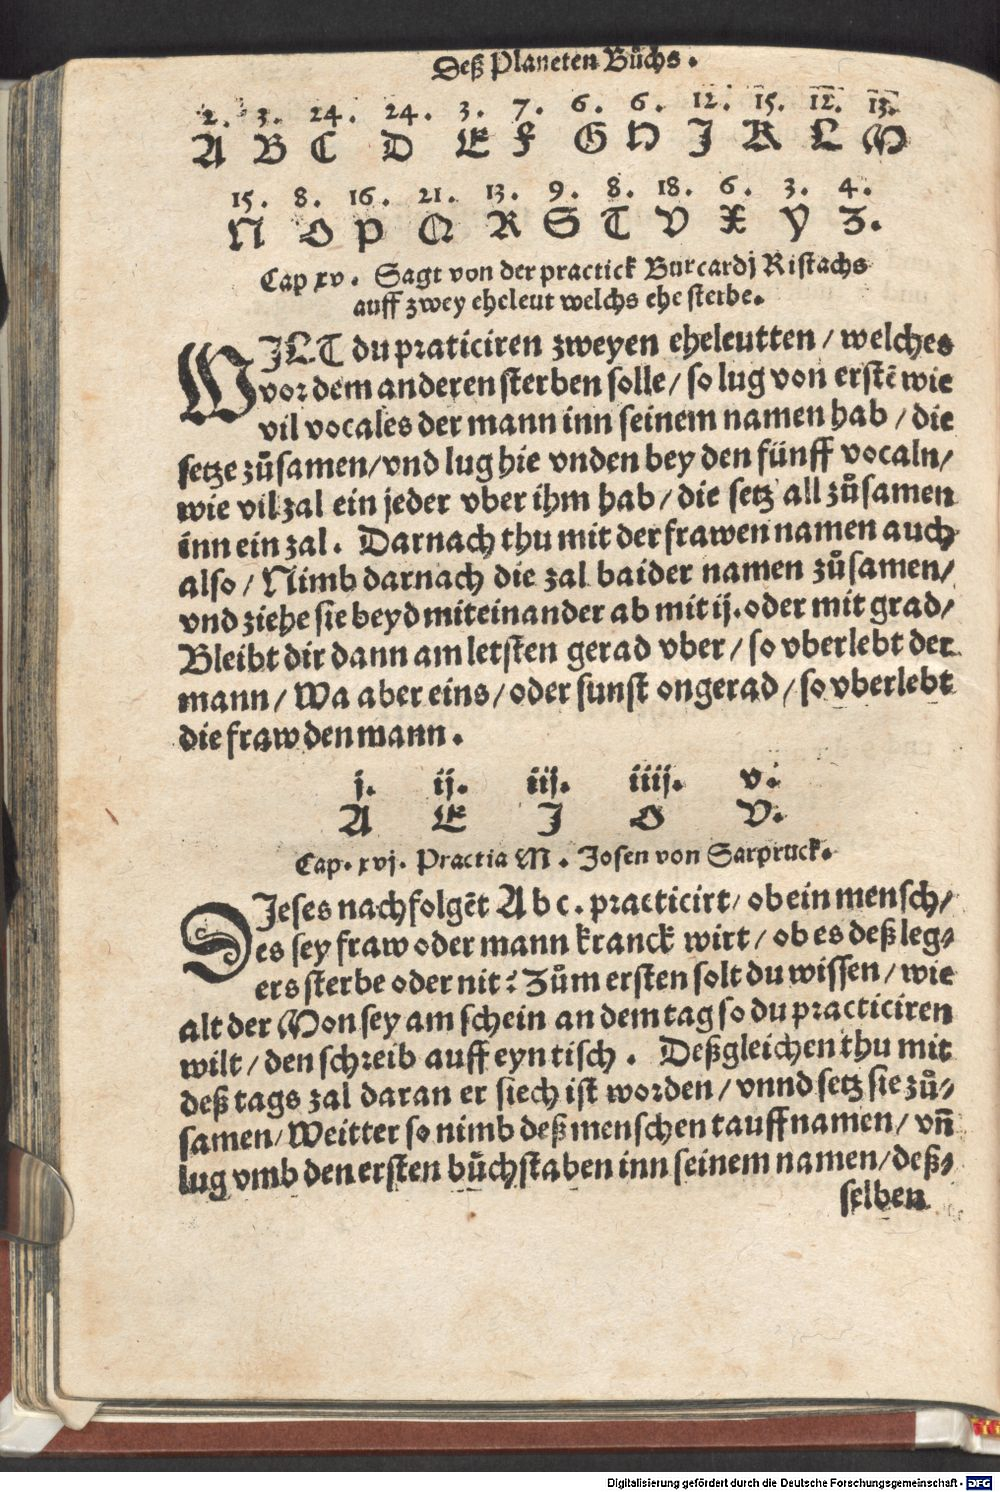 Deß Planeten Bůchs.
2. 3. 24. 24. 3. 7. 6. 6. 12. 15. 12. 13.
A B C D E F G H J K L M
15. 8. 16. 21. 13. 9. 8. 18. 6. 3. 4.
N O P Q R S T V X Y Z.
Cap xv. Sagt von der practick Burcardj Ristachs
auff zwey eheleut welchs ehe sterbe.
WJLT du praticiren zweyen eheleutten / welches
vor dem anderen sterben solle / so lug von erstẽ wie
vil vocales der mann inn seinem namen hab / die
setze zůsamen / vnd lug hie vnden bey den fünff vocaln /
wie vil zal ein jeder vber ihm hab / die setz all zůsamen
inn ein zal. Darnach thu mit der frawen namen auch
also / Nimb darnach die zal baider namen zůsamen /
vnd ziehe sie beyd miteinander ab mit ij. oder mit grad /
Bleibt dir dann am letsten gerad vber / so vberlebt der
mann / Wa aber eins / oder sunst ongerad / so vberlebt
die fraw den mann.
j. ij. iij. iiij. v.
A E J O V.
Cap. xvj. Practia M. Josen von Sarpruck.
DJeses nachfolgẽt A b c. practicirt / ob ein mensch /
es sey fraw oder mann kranck wirt / ob es deß leg⸗
ers sterbe oder nit: Zům ersten solt du wissen / wie
alt der Mon sey am schein an dem tag so du practiciren
wilt / den schreib auff eyn tisch. Deßgleichen thu mit
deß tags zal daran er siech ist worden / vnnd setz sie zů⸗
samen / Weitter so nimb deß menschen tauffnamen / vñ
lug vmb den ersten bůchstaben inn seinem namen / deß⸗
selben
Digitalisierung gefördert durch die Deutsche Forschungsgemeinschaft - DFG